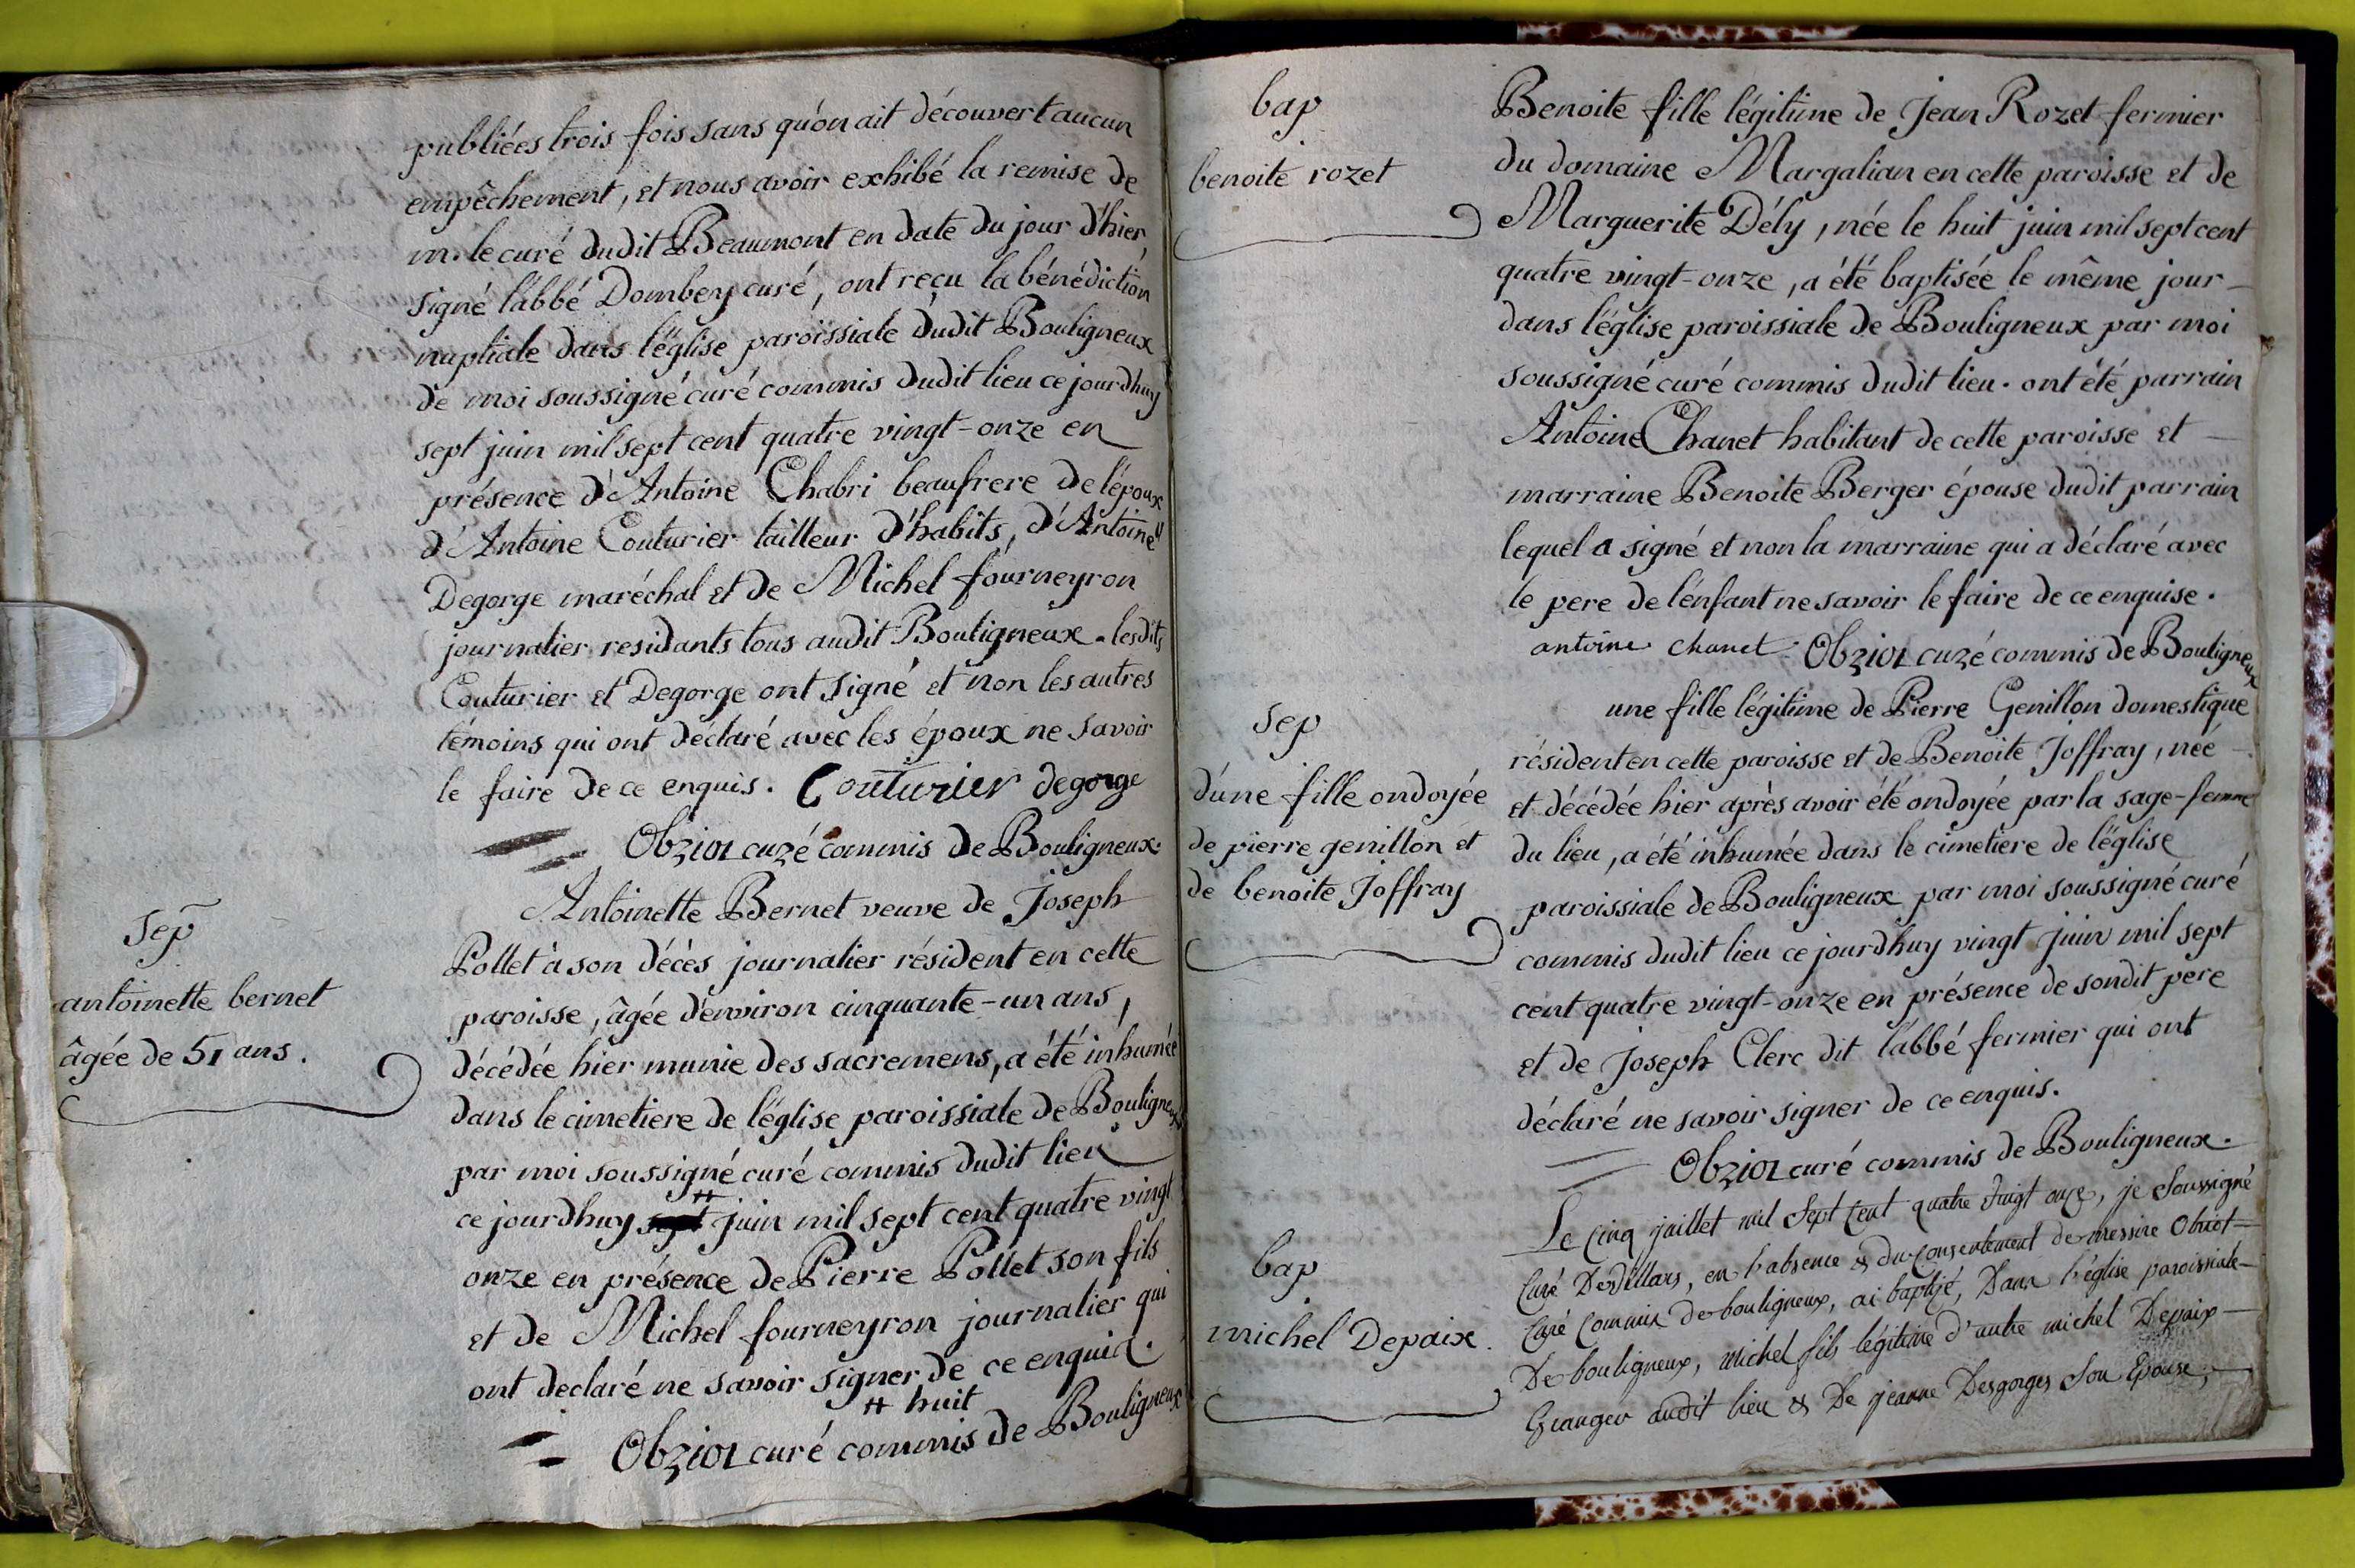 publiées trois fois sans qu'on ait découvert aucun
empêchement, et nous avoir exhibé la remise de
m. le curé dudit Beaumont en date du jour d'hier,
signé l'abbé Dombey curé, ont reçu la bénédiction
nuptiale dans l'église paroissiale dudit Bouligneux
de moi soussigné curé commis dudit lieu ce jourdhuy
sept juin mil sept cent quatre vingt-onze en
présence d'Antoine Chabri beaufrere de l'époux
d'Antoine Couturier tailleur d'habits, d'Antoine
Degorge maréchal et de Michel fourneyron
journalier residants tous audit Bouligneux. lesdits
Couturier et Degorge ont signé et non les autres
témoins qui ont déclaré avec les époux ne savoir
le faire de ce enquis. Couturier degorge
Obriot curé commis de Bouligneux.
sep
antoinette bernet
âgée de 51 ans.
Antoinette Bernet veuve de Joseph
Pollet à son décès journalier résident en cette
paroisse, âgée d'environ cinquante-un ans,
décédée hier munie des sacremens, a été inhumée
dans le cimetiere de l'église paroissiale de Bouligneux
par moi soussigné curé commis dudit lieu
ce jourdhuy sept # juin mil sept cent quatre vingt
onze en présence de Pierre Pollet son fils
et de Michel fourneyron journalier qui
ont declaré ne savoir signer de ce enquis.
# huit
Obriot curé commis de Bouligneux
bap
benoite rozet
Benoite fille légitime de Jean Rozet fermier
du domaine Margalian en cette paroisse et de
Marguerite Dély, née le huit juin mil sept cent
quatre vingt-onze, a été baptisée le même jour
dans l'église paroissiale de Bouligneux par moi
soussigné curé commis dudit lieu. ont été parrain
Antoine Chanet habitant de cette paroisse et
marraine Benoite Berger épouse dudit parrain
lequel a signé et non la marraine qui a déclaré avec
le pere de l'enfant ne savoir le faire de ce enquise.
antoine chanet. Obriot curé commis de Bouligneux
sep
d'une fille ondoyée
de pierre genillon et
de benoite Joffray
une fille légitime de Pierre Genillon domestique
résident en cette paroisse et de Benoite Joffray, née
et décédée hier après avoir été ondoyée par la sage-femme
du lieu, a été inhumée dans le cimetiere de l'église
paroissiale de Bouligneux par moi soussigné curé
commis dudit lieu ce jourdhuy vingt juin mil sept
cent quatre vingt-onze en présence de sondit pere
et de Joseph Clerc dit l'abbé fermier qui ont
déclaré ne savoir signer de ce enquis.
Obriot curé commis de Bouligneux.
bap
michel Depaix.
Le cinq juillet mil sept cent quatre vingt onze, je soussigné
Curé De villars, en l'absence & du consentement de messire Obriot
Curé commis de bouligneux, ai baptisé, Dans l'église paroissiale
De bouligneux, michel fils légitime d'autre michel Depaix
Granger audit lieu & De jeanne Desgorges son Epouse,